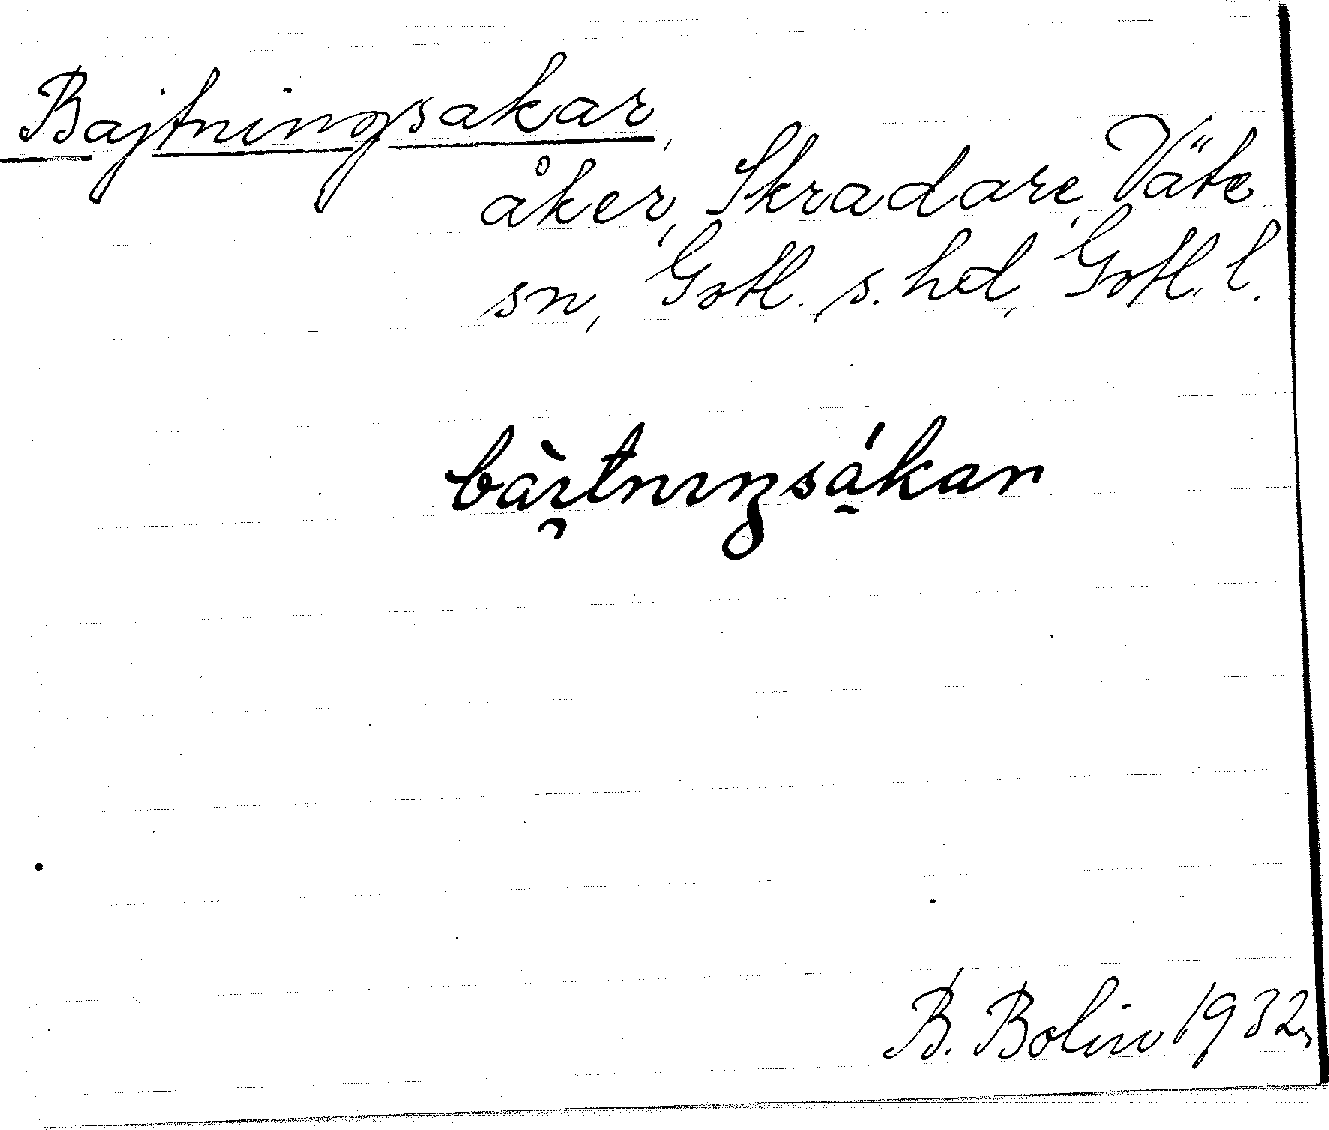 Bajtningsakar,
åker, Skradare, Väte
sn, Gotl. s. hd, Gotl. l.
bài̯tnıŋsá̱kar
B. Bolin 1932.